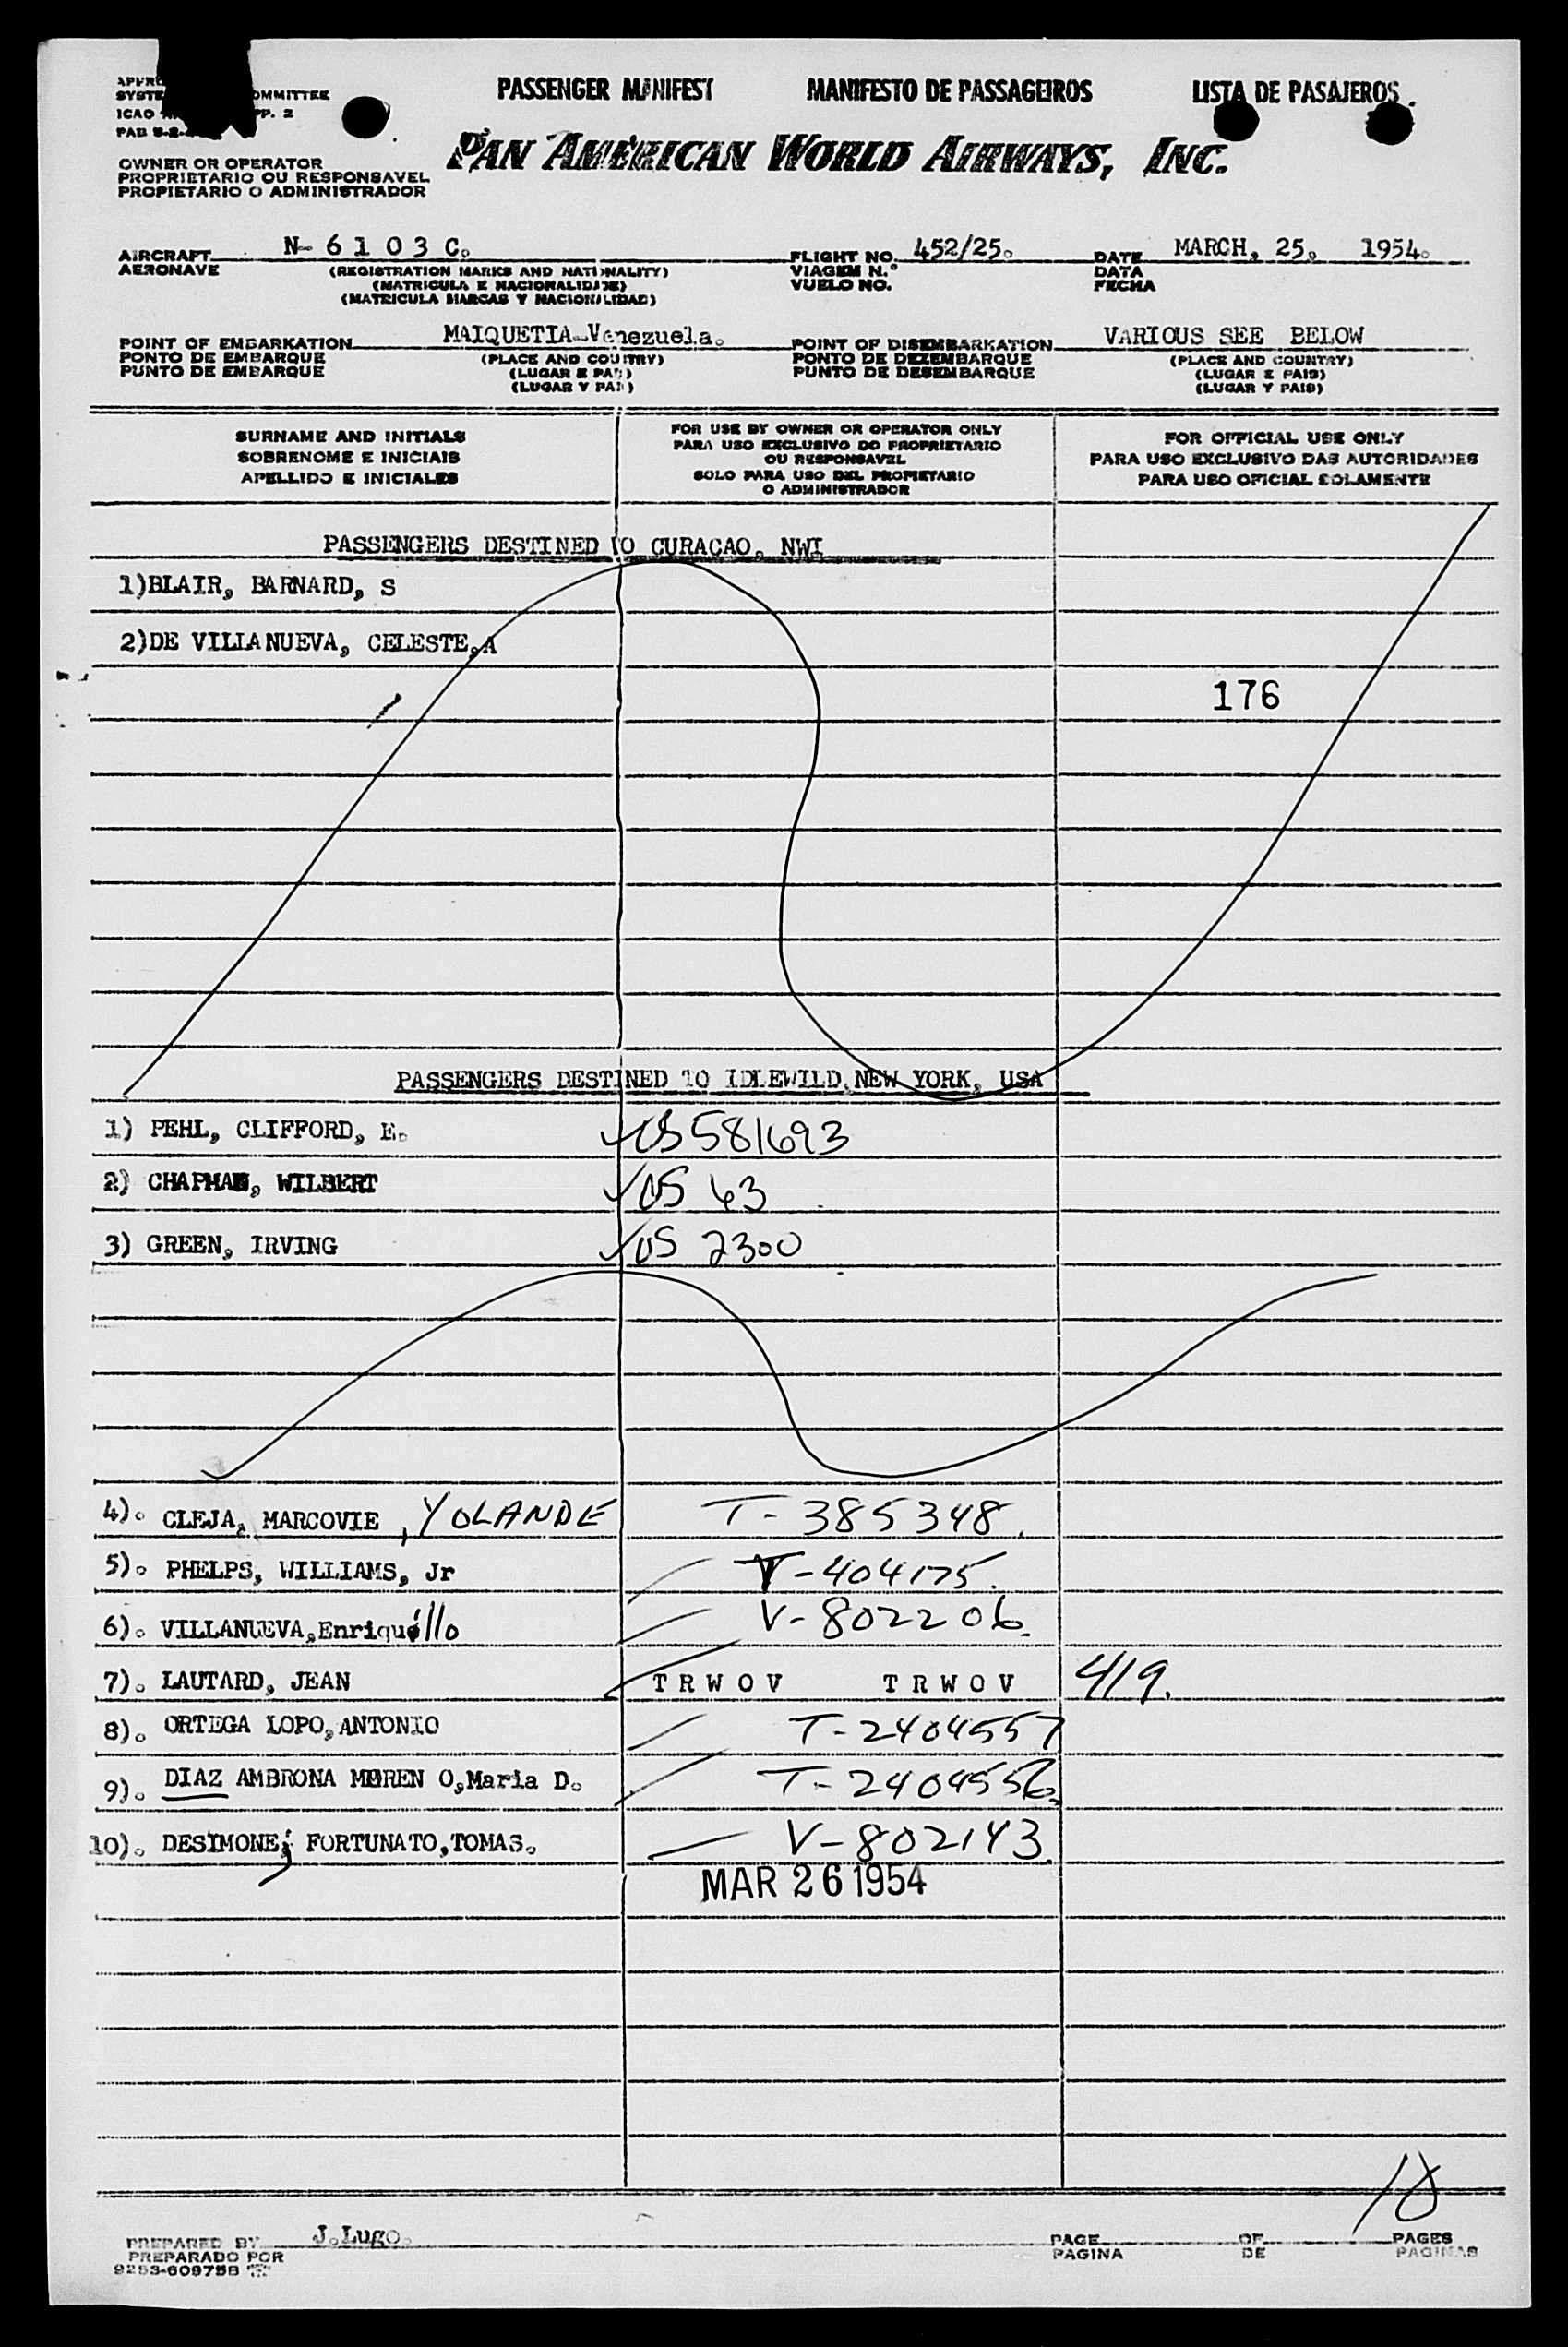 PASSENGER MANIFEST MANIFESTO DE PASSAGEIROS LISTA DE PASAJEROS
OMMITTEE
ICAO PP. 2
PAN AMERICAN WORLD AIRWAYS, INC.
OWNER OR OPERATOR
PROPRIETARIO OU RESPONSAVEL
PROPIETARIO O ADMINISTRADOR
AIRCRAFT N- 6 1 0 3 C. FLIGHT NO. 452/25. DATE MARCH, 25, 1954.
AERONAVE (REGISTRATION MARKS AND NATIONALITY) VIAGEM N.º DATA
(MATRICULA E NACIONALIDADE) VUELO NO. FECHA
(MATRICULA MARCAS Y NACIONALIDAD)
POINT OF EMBARKATION MAIQUETIA-Venezuela. POINT OF DISEMBARKATION VARIOUS SEE BELOW
PONTO DE EMBARQUE (PLACE AND COUNTRY) PONTO DE DEZEMBARQUE (PLACE AND COUNTRY)
PUNTO DE EMBARQUE (LUGAR E PAIS) PUNTO DE DESEMBARQUE (LUGAR E PAIS)
(LUGAR Y PAIS) (LUGAR Y PAIS)
SURNAME AND INITIALS
SOBRENOME E INICIAIS
APELLIDO E INICIALES
FOR USE BY OWNER OR OPERATOR ONLY
PARA USO EXCLUSIVO DO PROPRIETARIO
OU RESPONSAVEL
SOLO PARA USO DEL PROPIETARIO
O ADMINISTRADOR
FOR OFFICIAL USE ONLY
PARA USO EXCLUSIVO DAS AUTORIDADES
PARA USO OFICIAL SOLAMENTE
PASSENGERS DESTINED TO CURACAO, NWI
1)BLAIR, BARNARD, S
2)DE VILLANUEVA, CELESTE,A
176
PASSENGERS DESTINED TO IDLEWILD,NEW YORK, USA
1) PEHL, CLIFFORD, E. US 581693
2) CHAPMAN, WILBERT US 63
3) GREEN, IRVING US 2300
4). CLEJA, MARCOVIE , YOLANDE T-385348.
5). PHELPS, WILLIAMS, Jr T-404175.
6). VILLANUEVA,Enriquillo V-802206.
7). LAUTARD, JEAN T R W O V T R W O V 419.
8). ORTEGA LOPO,ANTONIO T-2404557
9). DIAZ AMBRONA MOREN O,Maria D. T-2404556.
10). DESIMONE; FORTUNATO,TOMAS. V-802143.
MAR 26 1954
10
PREPARED BY J.Lugo. PAGE OF PAGES
PREPARADO POR PAGINA DE PAGINAS
9253-609758